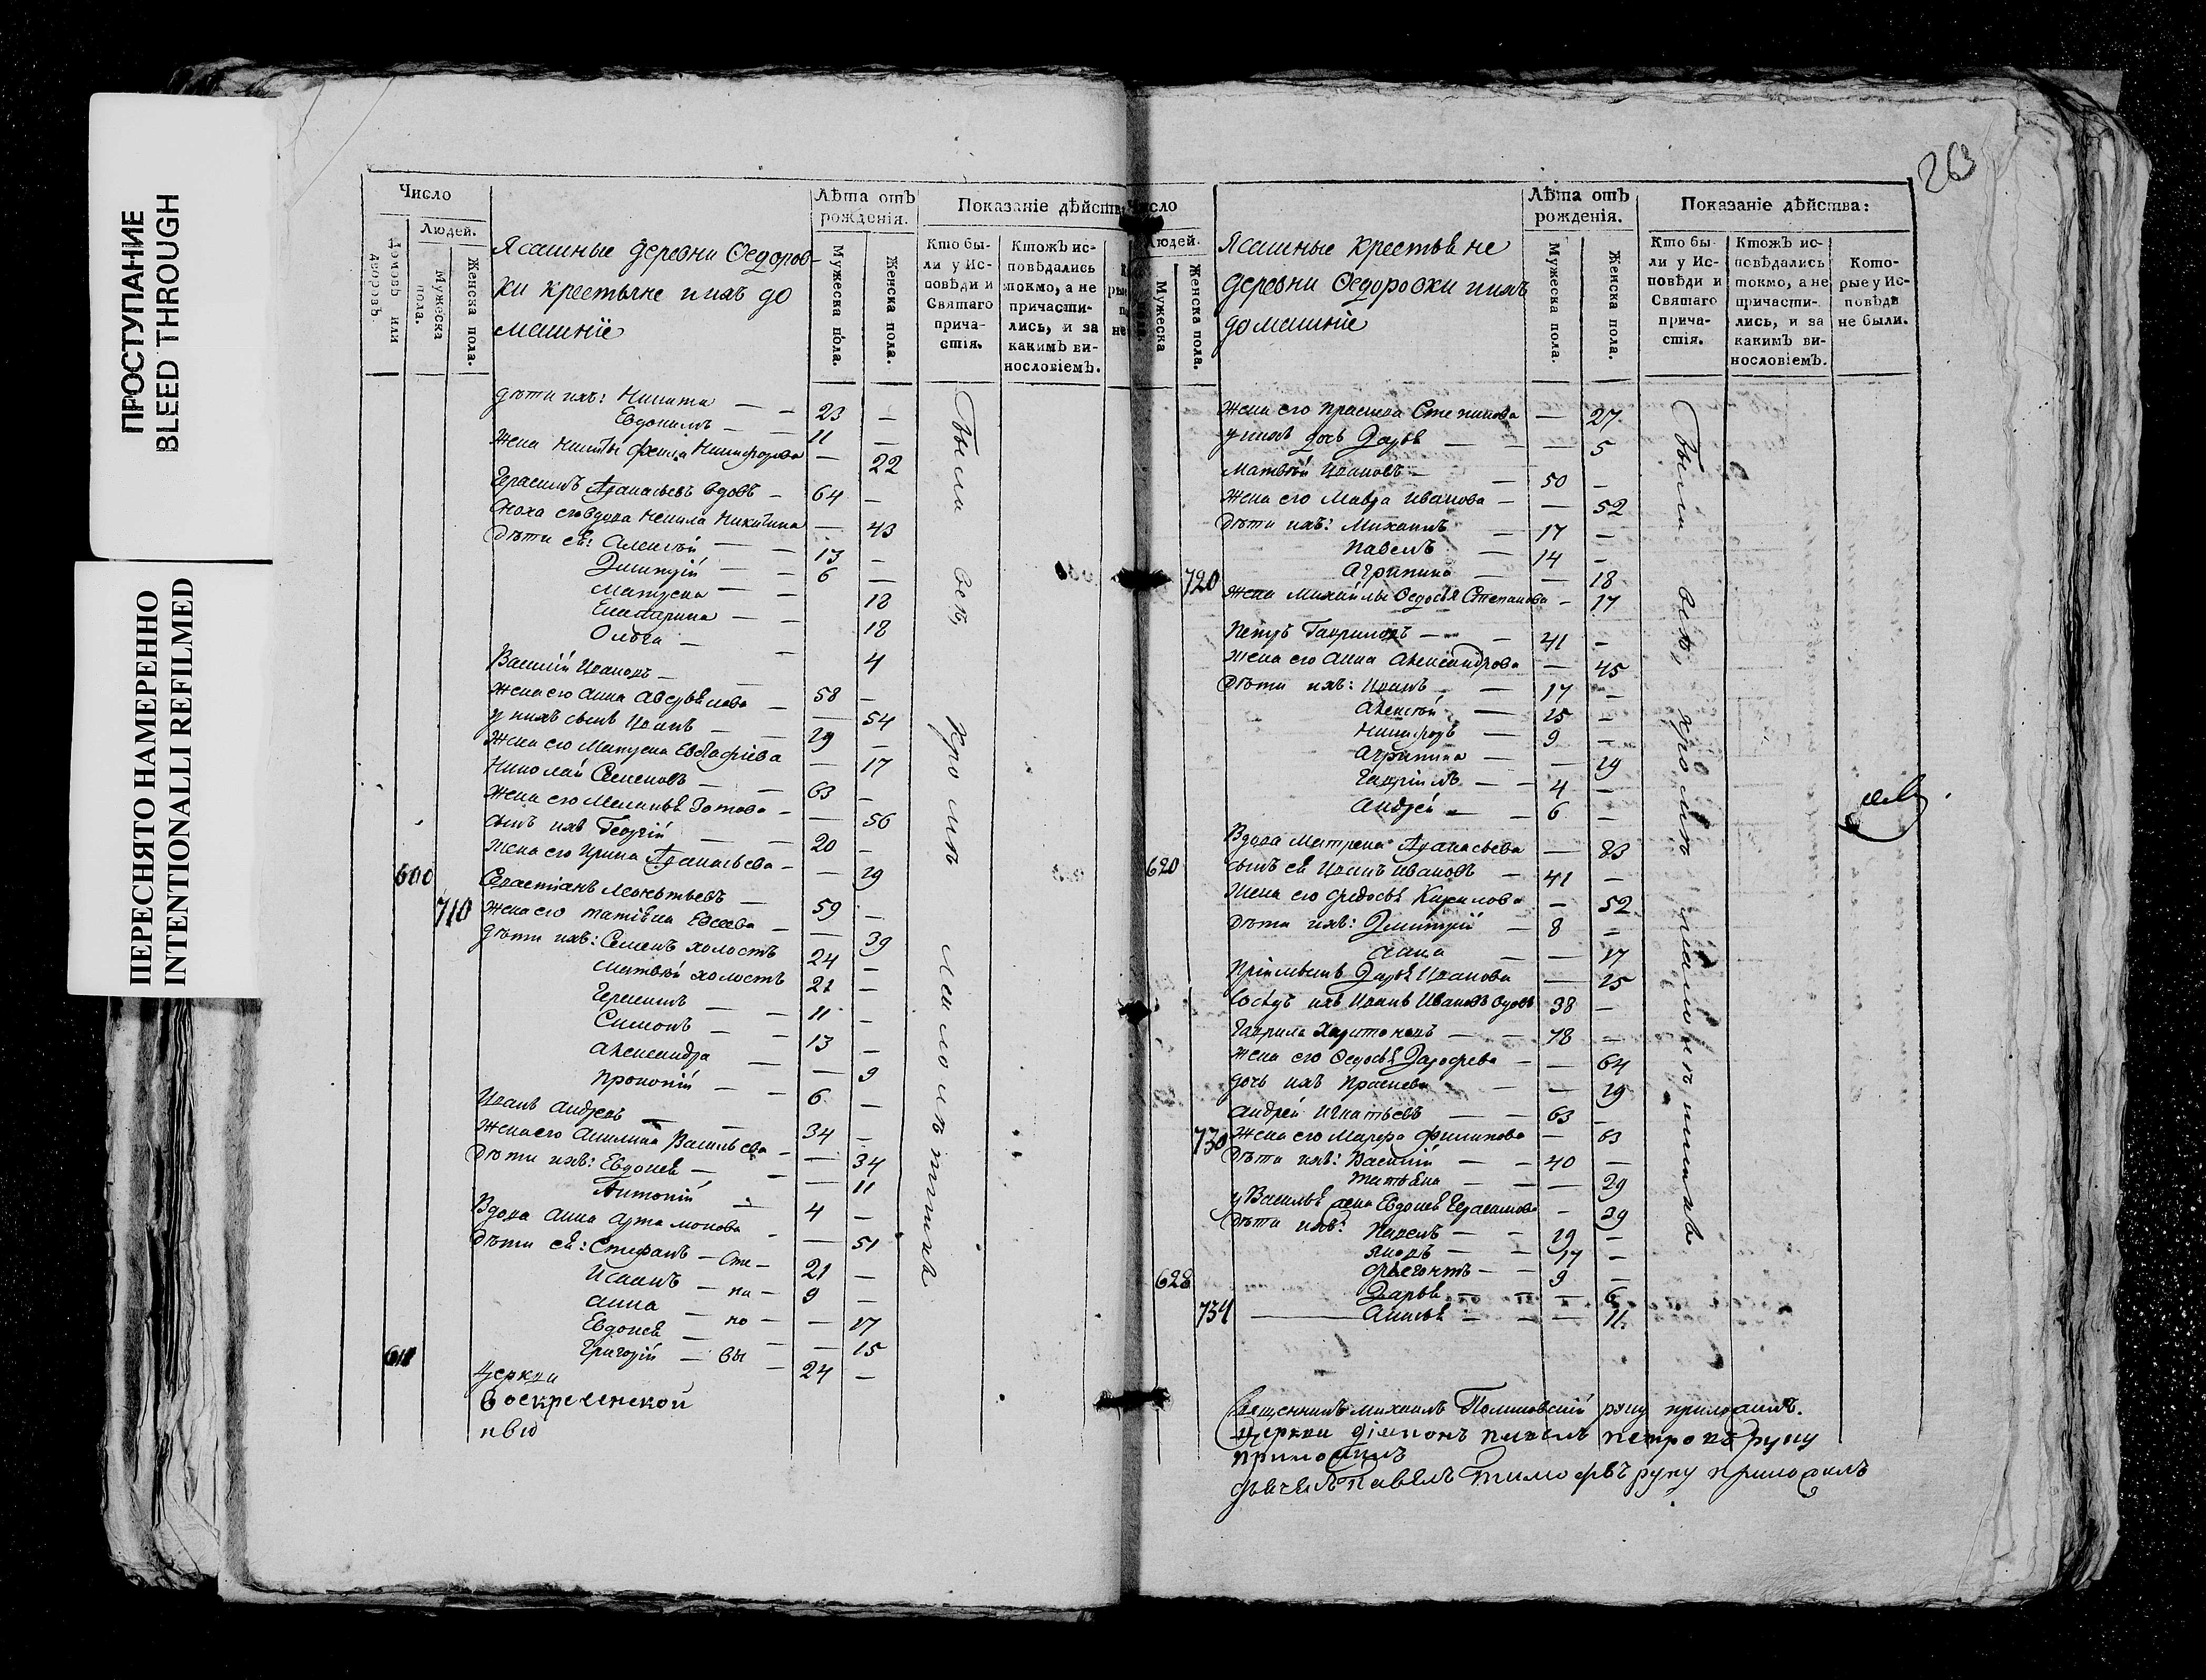 ПРОСТУПАНИЕ
BLEED THROUGH
ПЕРЕСНЯТО НАМЕРЕННО
INTENTIONALLI REFILMED
Число
Домовъ или дворовъ.
Людей.
Мужеска пола.
Женска пола.
Ясашные деревни Ѳедоров-
ки крестьяне и ихъ до
машніе
Лѣта отъ
рожденія.
Мужеска пола.
Женска пола.
Показаніе дѣйства
Кто бы-
ли у Ис-
повѣди и
Святаго
прича-
стія.
Ктожъ ис-
повѣдались
токмо, а не
причасти-
лись, и за
какимъ ви-
нословіемъ.
дѣти ихъ: Никита — — 23 —
Евдокимъ — — 11 —
жена Никиты Фекла Никифорова — 22
Герасимъ Аѳанасьевъ вдовъ — 64 —
Сноха его вдова Ненила Никитина — 43
Дѣти ея: Алексѣй — — 13 —
Димитрій — — 6 —
Матрена — — 18
Екатерина — — 18
Ольга — — 4
Василій Ивановъ — — 58 —
жена его Анна — — 54
у нихъ сынъ Иванъ — — 29 —
жена его Матрена Евстафіева — 17
Николай Семеновъ — — 63 —
жена его Меланья Зотова — — 56
сынъ ихъ Георгій — — 20 —
жена его Ирина Аѳанасьева — — 29
600
Севастіанъ Леонтьевъ — 59 —
710
жена его Татіяна Евсеева — — 39
дѣти ихъ: Семенъ холостъ 24 —
Матвѣй холостъ 21 —
Герасимъ — — 11 —
Симонъ — — 13 —
Александра — — 9
Прокопій — — 6 —
Иванъ Андреевъ — — 34 —
жена его Акилина Васильева — — 34
Дѣти ихъ: Евдокія — — 11
Антоній — 4 —
Вдова Анна Артамонова — — 51
Дѣти ея: Стефанъ — Сте — 21 —
Исаакъ — па — 9 —
Анна — но — — 17
Евдокія — — 15
618
Григорій — вы — 24 —
Церкви
воскресенской
пвю
Были всѣ, кромѣ малолѣтнихъ
263
Число
Людей.
Мужеска
Женска пола.
Ясашные крестьяне
деревни Ѳедоровки и ихъ
домашніе
Лѣта отъ
рожденія.
Мужеска пола.
Женска пола.
Показаніе дѣйства:
Кто бы-
ли у Ис-
повѣди и
Святаго
прича-
стія.
Ктожъ ис-
повѣдались
токмо, а не
причасти-
лись, и за
какимъ ви-
нословіемъ.
Кото-
рые у Ис-
повѣди
не были.
жена его Праскева Степанова — 27
у нихъ дочь Дарья — — 5
Матвѣй Ивановъ — — 50 —
жена его Мавра Иванова — — 52
Дѣти ихъ: Михаилъ — 17 —
Павелъ — 14 —
720
Агрипина — — 18
жена Михайлы Ѳедосья Степанова — 17
Петръ Гавриловъ — — 41 —
жена его Анна Александрова — 45
Дѣти ихъ: Иванъ — — 17 —
Алексѣй — 15 —
Никифоръ — 9 —
Агрипина — — 19
Гавріилъ — — 4 —
Андрей — — 6 —
Вдова Матрена Аѳанасьева — 83
620
сынъ ея Иванъ Ивановъ — 41 —
жена его Ѳедосья Кирилова — 52
Дѣти ихъ: Димитрій — 8 —
Анна — — 17
Дарья Иванова — 25
Сосѣдъ ихъ Иванъ Ивановъ вдовъ 38 —
Гаврила Харитоновъ — — 78 —
жена его Ѳедосья — — 64
дочь ихъ Праскева — — 29
Андрей Игнатьевъ — — 63 —
730
жена его Марфа Филипова — 63
Дѣти ихъ: Василій — — 40 —
Татьяна — — 29
у Василья жена Евдокія Герасимова — 39
Дѣти ихъ: Павелъ — — 19 —
Яковъ — — 17 —
628
— — 9 —
Дарья — — — 6
734
Акилья — — — 11
Были всѣ, кромѣ малолѣтнихъ
Священникъ Михаилъ руку приложилъ.
Церкви діаконъ Павелъ Петровъ руку
приложилъ
дьячекъ Павелъ Тимофѣевъ руку приложилъ